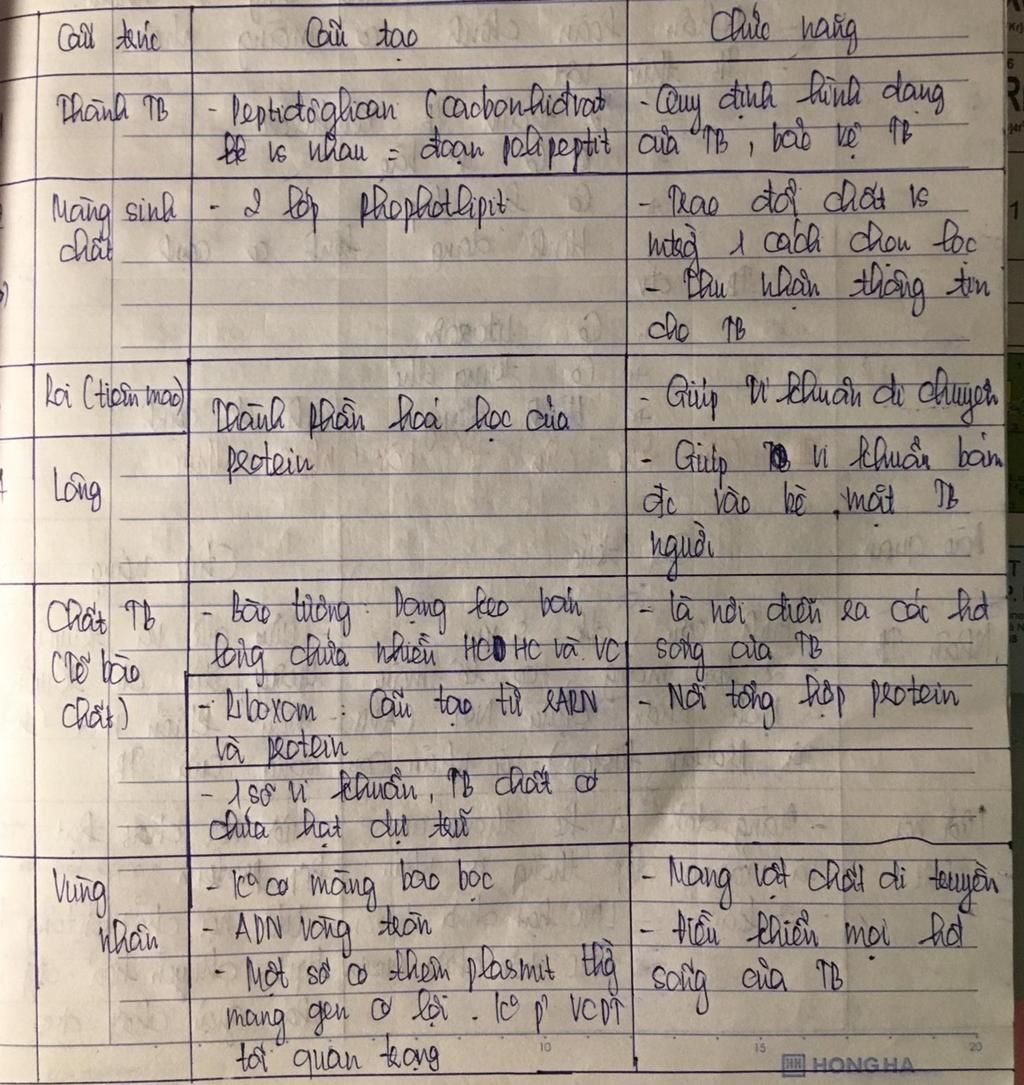 Cấu trúc
Cấu tạo
Chức năng
Thành TB
- Peptidôglican (cacbonhiđrat
vs nhau = đoạn polipeptit
- Quy định hình dạng
của TB, bảo vệ TB
Màng sinh
chất
- 2 lớp phophotlipit
- Trao đổi chất vs
mtrg 1 cách chọn lọc
- Thu nhận thông tin
cho TB
Roi (tiêm mao)
Thành phần hoá học của
protein
- Giúp vi khuẩn di chuyển
Lông
- Giúp vi khuẩn bám
đc vào bề mặt TB
người
Chất TB
(Tế bào
chất)
- Bào tương: Dạng keo bán
lỏng chứa nhiều HC HC và VC
- là nơi diễn ra các hđ
sống của TB
- Riboxom: Cấu tạo từ rARN
và protein
- Nơi tổng hợp protein
- 1 số vi khuẩn, TB chất có
chứa hạt dự trữ
Vùng
nhân
- K° có màng bao bọc
- ADN vòng tròn
- Một số có thêm plasmit thg
mang gen có lợi. K° p' VCDT
tối quan trọng
- Mang vật chất di truyền
- Điều khiển mọi hđ
sống của TB
10
15
20
HH HONG HA